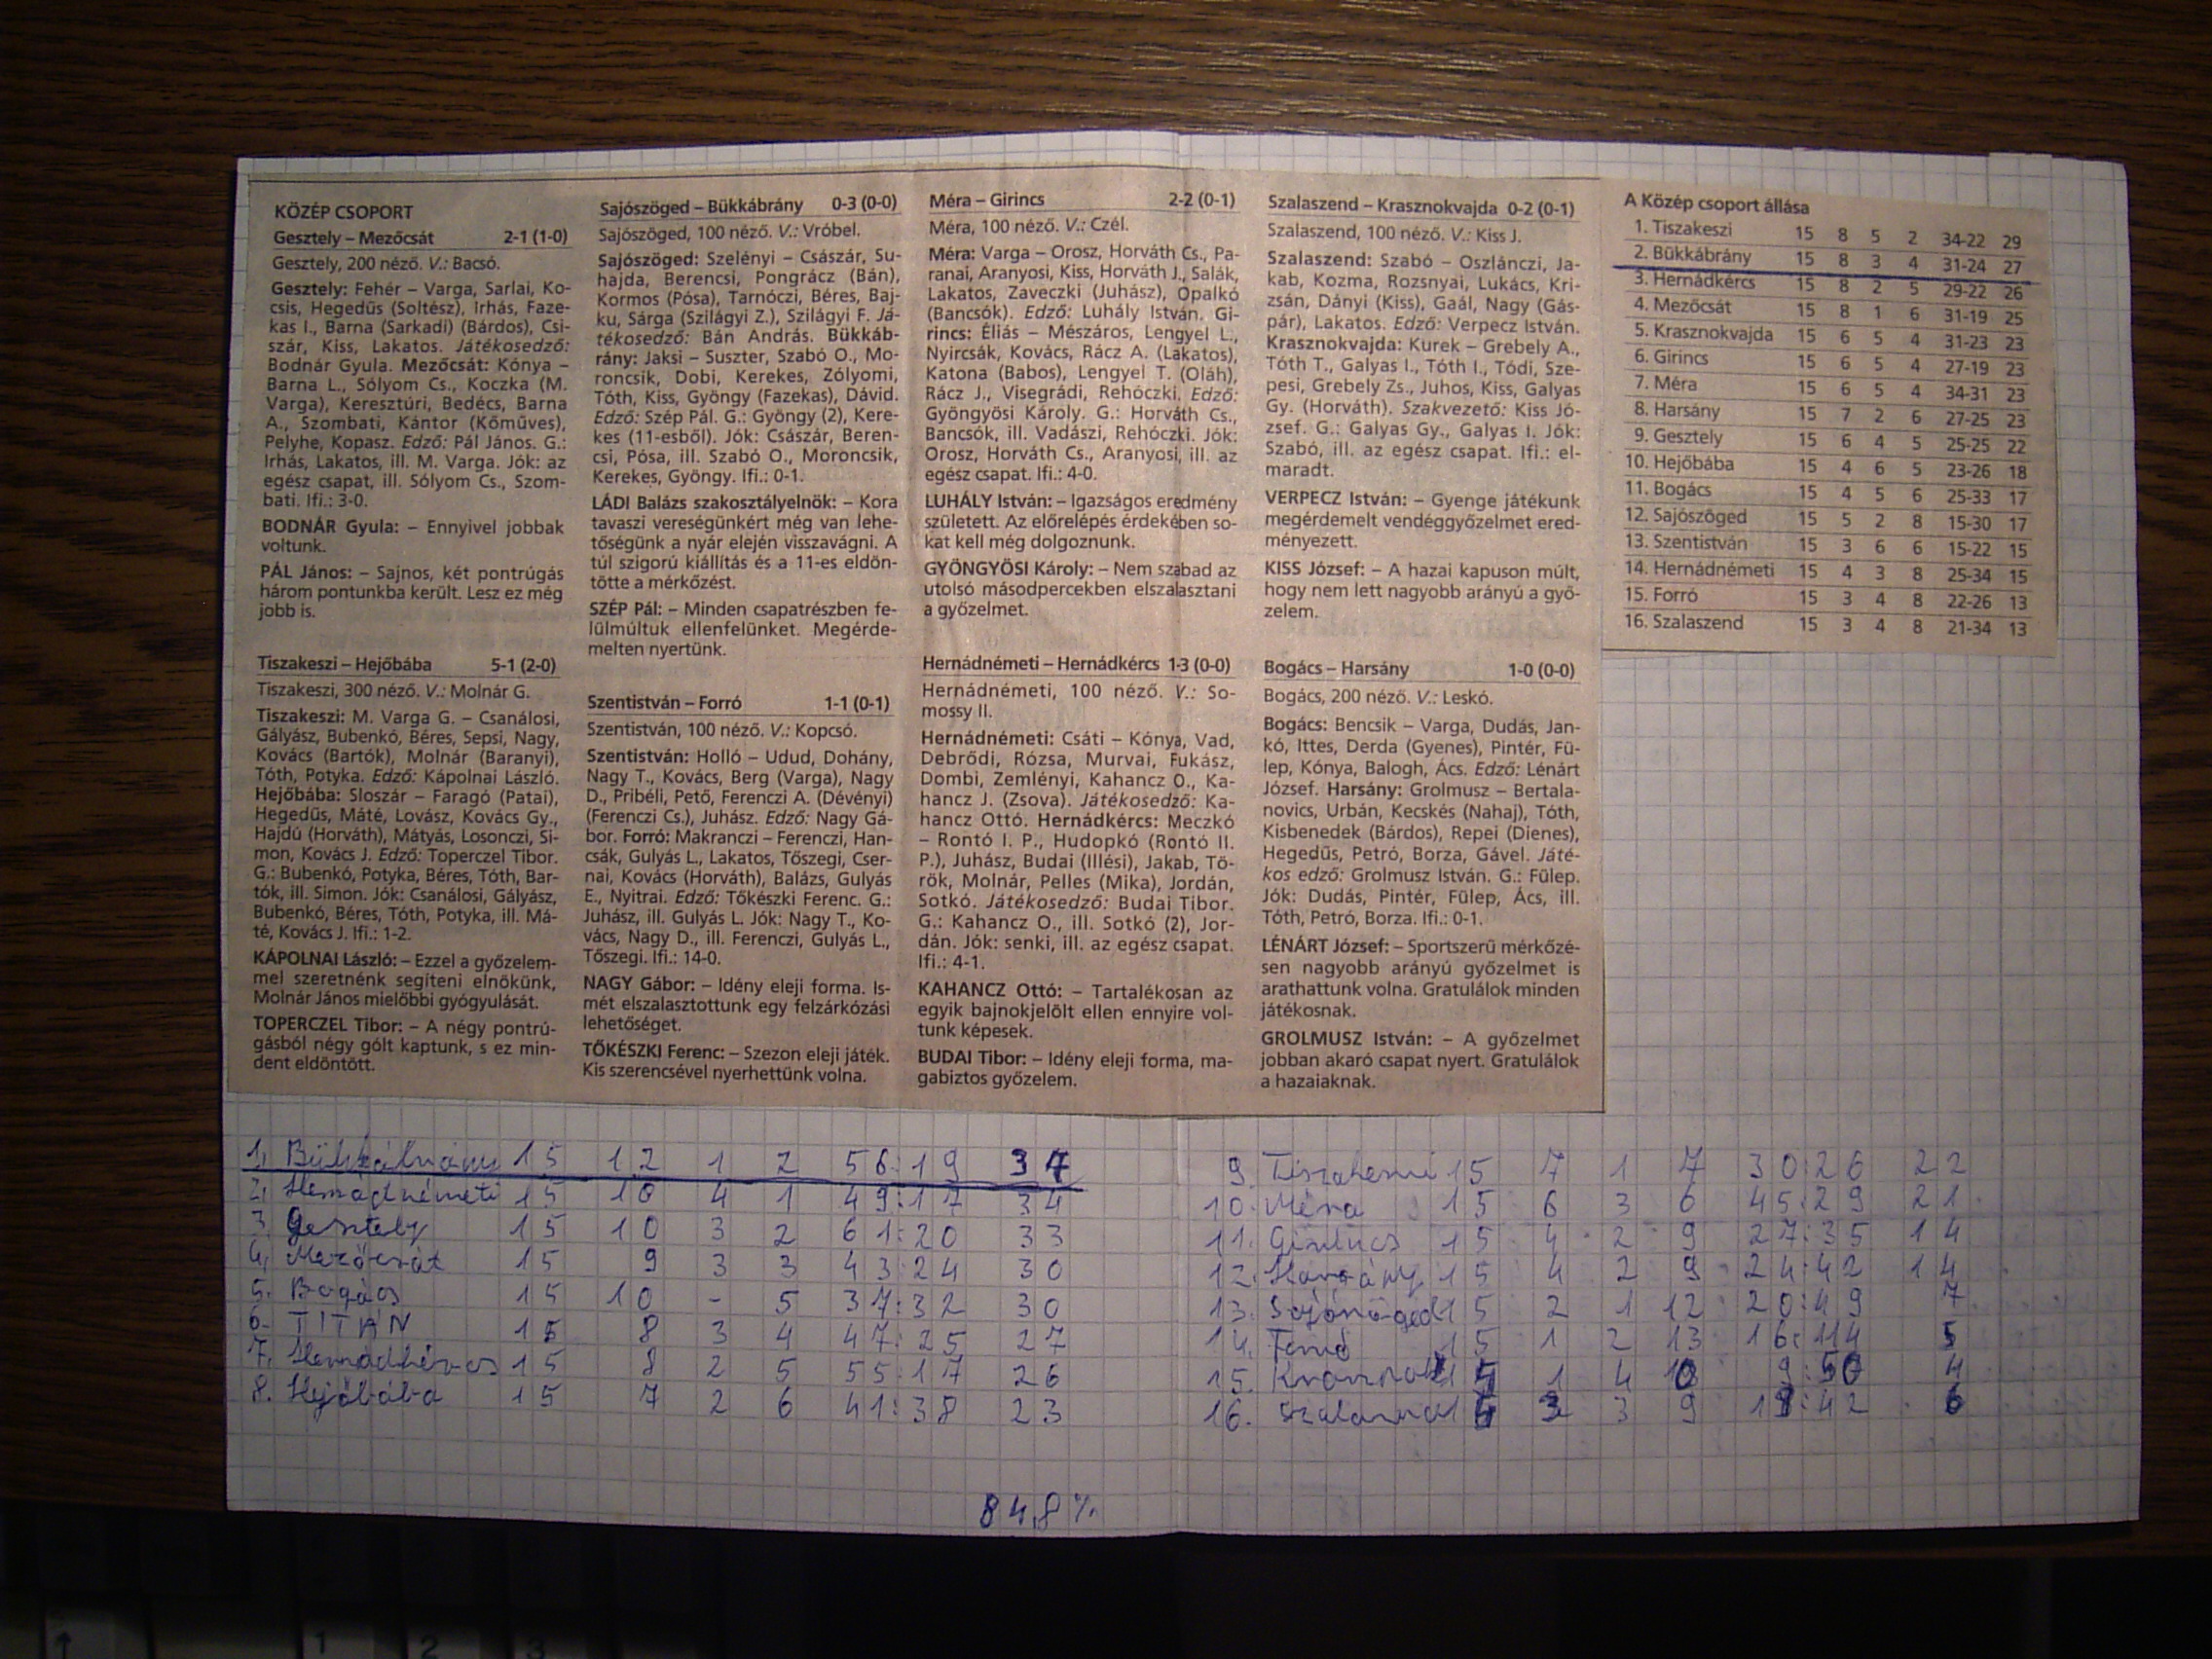 KÖZÉP CSOPORT
Gesztely – Mezőcsát 2-1 (1-0)
Gesztely, 200 néző. V.: Bacsó.
Gesztely: Fehér – Varga, Sarlai, Ko-
csis, Hegedűs (Soltész), Irhás, Faze-
kas I., Barna (Sarkadi) (Bárdos), Csi-
szár, Kiss, Lakatos. Játékosedző:
Bodnár Gyula. Mezőcsát: Kónya –
Barna L., Sólyom Cs., Koczka (M.
Varga), Keresztúri, Bedécs, Barna
A., Szombati, Kántor (Kőműves),
Pelyhe, Kopasz. Edző: Pál János. G.:
Irhás, Lakatos, ill. M. Varga. Jók: az
egész csapat, ill. Sólyom Cs., Szom-
bati. Ifi.: 3-0.
BODNÁR Gyula: – Ennyivel jobbak
voltunk.
PÁL János: – Sajnos, két pontrúgás
három pontunkba került. Lesz ez még
jobb is.
Tiszakeszi – Hejőbába 5-1 (2-0)
Tiszakeszi, 300 néző. V.: Molnár G.
Tiszakeszi: M. Varga G. – Csanálosi,
Gályász, Bubenkó, Béres, Sepsi, Nagy,
Kovács (Bartók), Molnár (Baranyi),
Tóth, Potyka. Edző: Kápolnai László.
Hejőbába: Sloszár – Faragó (Patai),
Hegedűs, Máté, Lovász, Kovács Gy.,
Hajdú (Horváth), Mátyás, Losonczi, Si-
mon, Kovács J. Edző: Toperczel Tibor.
G.: Bubenkó, Potyka, Béres, Tóth, Bar-
tók, ill. Simon. Jók: Csanálosi, Gályász,
Bubenkó, Béres, Tóth, Potyka, ill. Má-
té, Kovács J. Ifi.: 1-2.
KÁPOLNAI László: – Ezzel a győzelem-
mel szeretnénk segíteni elnökünk,
Molnár János mielőbbi gyógyulását.
TOPERCZEL Tibor: – A négy pontrú-
gásból négy gólt kaptunk, s ez min-
dent eldöntött.
Sajószöged – Bükkábrány 0-3 (0-0)
Sajószöged, 100 néző. V.: Vróbel.
Sajószöged: Szelényi – Császár, Su-
hajda, Berencsi, Pongrácz (Bán),
Kormos (Pósa), Tarnóczi, Béres, Baj-
ku, Sárga (Szilágyi Z.), Szilágyi F. Já-
tékosedző: Bán András. Bükkáb-
rány: Jaksi – Suszter, Szabó O., Mo-
roncsik, Dobi, Kerekes, Zólyomi,
Tóth, Kiss, Gyöngy (Fazekas), Dávid.
Edző: Szép Pál. G.: Gyöngy (2), Kere-
kes (11-esből). Jók: Császár, Beren-
csi, Pósa, ill. Szabó O., Moroncsik,
Kerekes, Gyöngy. Ifi.: 0-1.
LÁDI Balázs szakosztályelnök: – Kora
tavaszi vereségünkért még van lehe-
tőségünk a nyár elején visszavágni. A
túl szigorú kiállítás és a 11-es eldön-
tötte a mérkőzést.
SZÉP Pál: – Minden csapatrészben fe-
lülmúltuk ellenfelünket. Megérde-
melten nyertünk.
Szentistván – Forró 1-1 (0-1)
Szentistván, 100 néző. V.: Kopcsó.
Szentistván: Holló – Udud, Dohány,
Nagy T., Kovács, Berg (Varga), Nagy
D., Pribéli, Pető, Ferenczi A. (Dévényi)
(Ferenczi Cs.), Juhász. Edző: Nagy Gá-
bor. Forró: Makranczi – Ferenczi, Han-
csák, Gulyás L., Lakatos, Tőszegi, Cser-
nai, Kovács (Horváth), Balázs, Gulyás
E., Nyitrai. Edző: Tőkészki Ferenc. G.:
Juhász, ill. Gulyás L. Jók: Nagy T., Ko-
vács, Nagy D., ill. Ferenczi, Gulyás L.,
Tőszegi. Ifi.: 14-0.
NAGY Gábor: – Idény eleji forma. Is-
mét elszalasztottunk egy felzárkózási
lehetőséget.
TŐKÉSZKI Ferenc: – Szezon eleji játék.
Kis szerencsével nyerhettünk volna.
Méra – Girincs 2-2 (0-1)
Méra, 100 néző. V.: Czél.
Méra: Varga – Orosz, Horváth Cs., Pa-
ranai, Aranyosi, Kiss, Horváth J., Salák,
Lakatos, Zaveczki (Juhász), Opalkó
(Bancsók). Edző: Luhály István. Gi-
rincs: Éliás – Mészáros, Lengyel L.,
Nyircsák, Kovács, Rácz A. (Lakatos),
Katona (Babos), Lengyel T. (Oláh),
Rácz J., Visegrádi, Rehóczki. Edző:
Gyöngyösi Károly. G.: Horváth Cs.,
Bancsók, ill. Vadászi, Rehóczki. Jók:
Orosz, Horváth Cs., Aranyosi, ill. az
egész csapat. Ifi.: 4-0.
LUHÁLY István: – Igazságos eredmény
született. Az előrelépés érdekében so-
kat kell még dolgoznunk.
GYÖNGYÖSI Károly: – Nem szabad az
utolsó másodpercekben elszalasztani
a győzelmet.
Hernádnémeti – Hernádkércs 1-3 (0-0)
Hernádnémeti, 100 néző. V.: So-
mossy II.
Hernádnémeti: Csáti – Kónya, Vad,
Debrődi, Rózsa, Murvai, Fukász,
Dombi, Zemlényi, Kahancz O., Ka-
hancz J. (Zsova). Játékosedző: Ka-
hancz Ottó. Hernádkércs: Meczkó
– Rontó I. P., Hudopkó (Rontó II.
P.), Juhász, Budai (Illési), Jakab, Tö-
rök, Molnár, Pelles (Mika), Jordán,
Sotkó. Játékosedző: Budai Tibor.
G.: Kahancz O., ill. Sotkó (2), Jor-
dán. Jók: senki, ill. az egész csapat.
Ifi.: 4-1.
KAHANCZ Ottó: – Tartalékosan az
egyik bajnokjelölt ellen ennyire vol-
tunk képesek.
BUDAI Tibor: – Idény eleji forma, ma-
gabiztos győzelem.
Szalaszend – Krasznokvajda 0-2 (0-1)
Szalaszend, 100 néző. V.: Kiss J.
Szalaszend: Szabó – Oszlánczi, Ja-
kab, Kozma, Rozsnyai, Lukács, Kri-
zsán, Dányi (Kiss), Gaál, Nagy (Gás-
pár), Lakatos. Edző: Verpecz István.
Krasznokvajda: Kurek – Grebely A.,
Tóth T., Galyas I., Tóth I., Tódi, Sze-
pesi, Grebely Zs., Juhos, Kiss, Galyas
Gy. (Horváth). Szakvezető: Kiss Jó-
zsef. G.: Galyas Gy., Galyas I. Jók:
Szabó, ill. az egész csapat. Ifi.: el-
maradt.
VERPECZ István: – Gyenge játékunk
megérdemelt vendéggyőzelmet ered-
ményezett.
KISS József: – A hazai kapuson múlt,
hogy nem lett nagyobb arányú a győ-
zelem.
Bogács – Harsány 1-0 (0-0)
Bogács, 200 néző. V.: Leskó.
Bogács: Bencsik – Varga, Dudás, Jan-
kó, Ittes, Derda (Gyenes), Pintér, Fü-
lep, Kónya, Balogh, Ács. Edző: Lénárt
József. Harsány: Grolmusz – Bertala-
novics, Urbán, Kecskés (Nahaj), Tóth,
Kisbenedek (Bárdos), Repei (Dienes),
Hegedűs, Petró, Borza, Gável. Játé-
kos edző: Grolmusz István. G.: Fülep.
Jók: Dudás, Pintér, Fülep, Ács, ill.
Tóth, Petró, Borza. Ifi.: 0-1.
LÉNÁRT József: – Sportszerű mérkőzé-
sen nagyobb arányú győzelmet is
arathattunk volna. Gratulálok minden
játékosnak.
GROLMUSZ István: – A győzelmet
jobban akaró csapat nyert. Gratulálok
a hazaiaknak.
A Közép csoport állása
1. Tiszakeszi 15 8 5 2 34-22 29
2. Bükkábrány 15 8 3 4 31-24 27
3. Hernádkércs 15 8 2 5 29-22 26
4. Mezőcsát 15 8 1 6 31-19 25
5. Krasznokvajda 15 6 5 4 31-23 23
6. Girincs 15 6 5 4 27-19 23
7. Méra 15 6 5 4 34-31 23
8. Harsány 15 7 2 6 27-25 23
9. Gesztely 15 6 4 5 25-25 22
10. Hejőbába 15 4 6 5 23-26 18
11. Bogács 15 4 5 6 25-33 17
12. Sajószöged 15 5 2 8 15-30 17
13. Szentistván 15 3 6 6 15-22 15
14. Hernádnémeti 15 4 3 8 25-34 15
15. Forró 15 3 4 8 22-26 13
16. Szalaszend 15 3 4 8 21-34 13
1. Bükkábrány 15 12 1 2 56:19 37
2. Hernádnémeti 15 10 4 1 49:17 34
3. Gesztely 15 10 3 2 61:20 33
4. Mezőcsát 15 9 3 3 43:24 30
5. Bogács 15 10 - 5 37:32 30
6. TITÁN 15 8 3 4 47:25 27
7. Hernádkércs 15 8 2 5 55:17 26
8. Hejőbába 15 7 2 6 41:38 23
9. Tiszakeszi 15 7 1 7 30:26 22
10. Méra 15 6 3 6 45:29 21
11. Girincs 15 4 2 9 27:35 14
12. Harsány 15 4 2 9 24:42 14
13. Sajószöged 15 2 1 12 20:49 7
14. Forró 15 1 2 13 16:114 5
15. 1 4 10 9:50 4
16. 3 3 9 42 6
84,8%